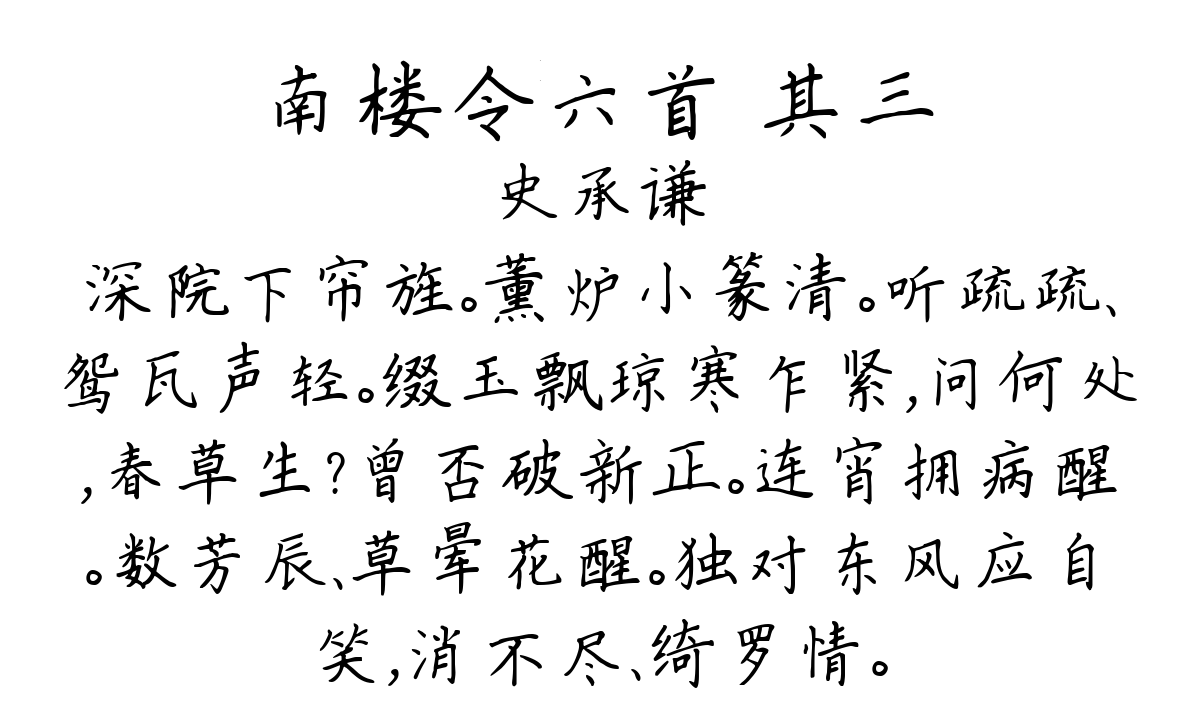 南楼令六首 其三
史承谦
深院下帘旌。薰炉小篆清。听疏疏、
鸳瓦声轻。缀玉飘琼寒乍紧,问何处
,春草生?曾否破新正。连宵拥病醒
。数芳辰、草晕花醒。独对东风应自
笑,消不尽、绮罗情。